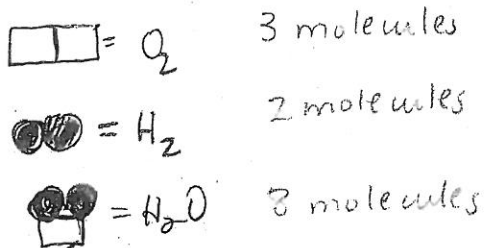 = O₂ 3 molecules
= H₂ 2 molecules
= H₂O molecules